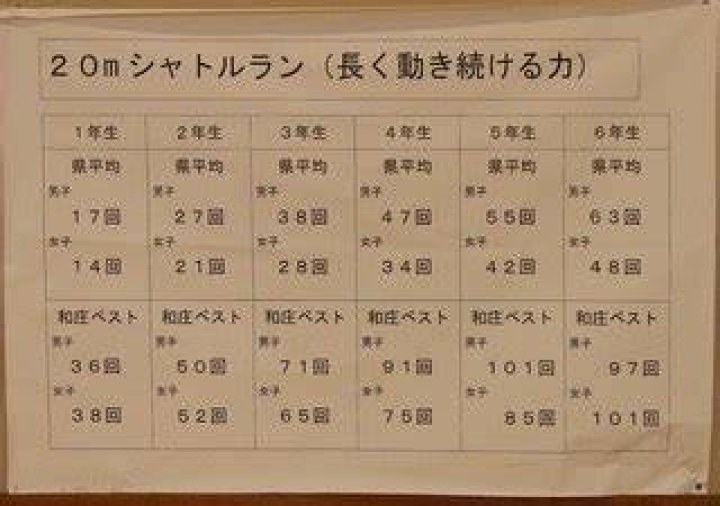 ２０ｍシャトルラン（長く動き続ける力）
１年生 ２年生 ３年生 ４年生 ５年生 ６年生
県平均 県平均 県平均 県平均 県平均 県平均
男子 男子 男子 男子 男子 男子
１７回 ２７回 ３８回 ４７回 ５５回 ６３回
女子 女子 女子 女子 女子 女子
１４回 ２１回 ２８回 ３４回 ４２回 ４８回
和庄ベスト 和庄ベスト 和庄ベスト 和庄ベスト 和庄ベスト 和庄ベスト
男子 男子 男子 男子 男子 男子
３６回 ５０回 ７１回 ９１回 １０１回 ９７回
女子 女子 女子 女子 女子 女子
３８回 ５２回 ６５回 ７５回 ８５回 １０１回